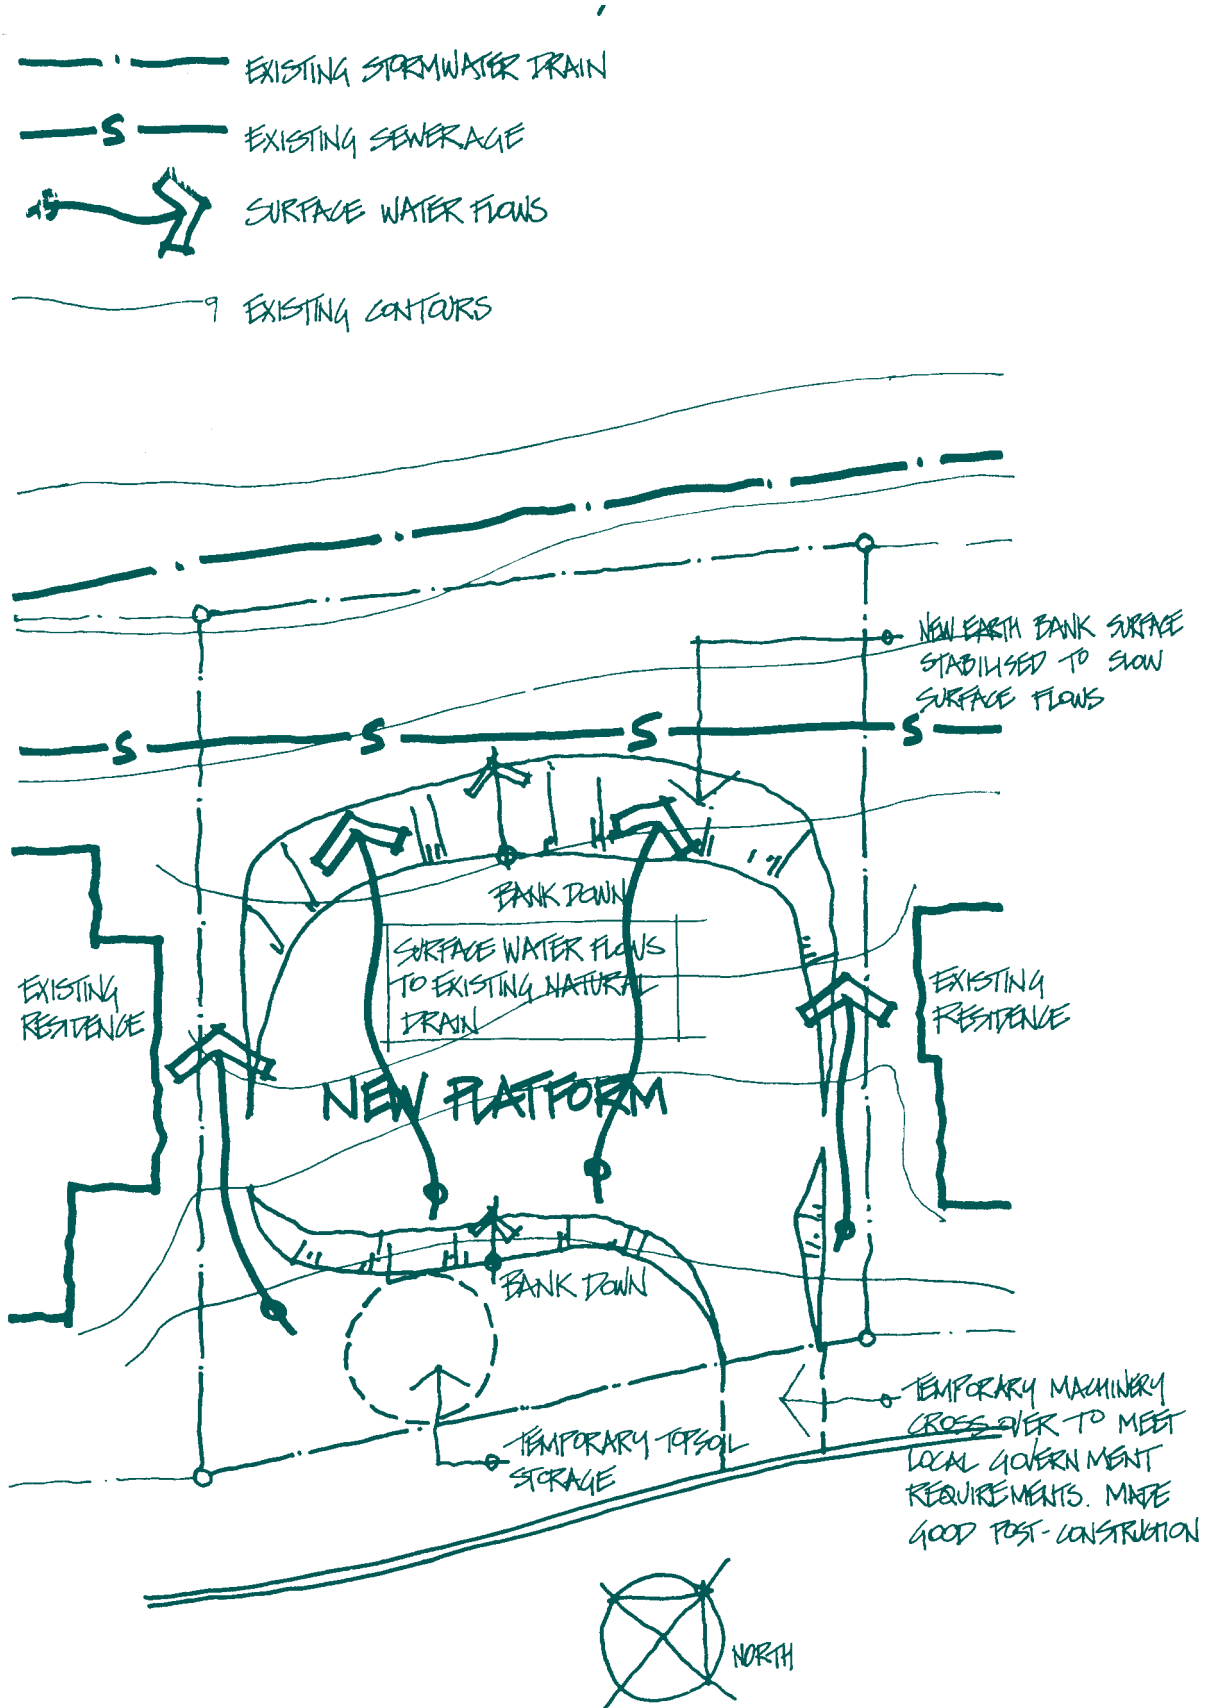 EXISTING STORMWATER DRAIN
S
EXISTING SEWERAGE
SURFACE WATER FLOWS
9
EXISTING CONTOURS
NEW EARTH BANK SURFACE
STABILISED TO SLOW
SURFACE FLOWS
S
S
S
S
BANK DOWN
SURFACE WATER FLOWS
TO EXISTING NATURAL
DRAIN
EXISTING
RESIDENCE
EXISTING
RESIDENCE
NEW PLATFORM
BANK DOWN
TEMPORARY MACHINERY
CROSS-OVER TO MEET
LOCAL GOVERNMENT
REQUIREMENTS. MADE
GOOD POST-CONSTRUCTION
TEMPORARY TOPSOIL
STORAGE
NORTH